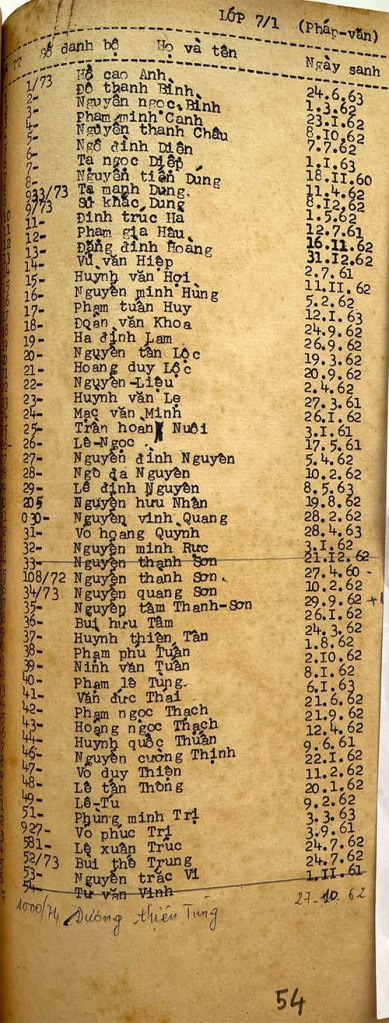 LỚP 7/1 (Pháp-văn)
Số danh bộ Họ và tên Ngày sanh
1/73 Hồ cao Anh 24.6.63
2- Đỗ thanh Bình 1.3.62
3- Nguyễn ngọc Bình 23.I.62
4- Phạm minh Cảnh 8.IO.62
5- Nguyễn thanh Châu 7.7.62
6- Ngô đình Diên 1.I.63
7- Tạ ngọc Diệp 18.II.60
8- Nguyễn tiến Dũng 11.4.62
933/73 Tạ mạnh Dung 8.I2.62
9/73 Sử khắc Dũng 1.5.62
11- Đinh trúc Hà 12.7.61
12- Phạm gia Hậu 16.11.62
13- Đặng đình Hoàng 31.12.62
14- Vũ văn Hiệp 2.7.61
15- Huỳnh văn Hợi 11.II.62
16- Nguyễn minh Hùng 5.2.62
17- Phạm tuấn Huy 12.I.63
18- Đoàn văn Khoa 24.9.62
19- Hà định Lam 26.9.62
20- Nguyễn tấn Lộc 19.3.62
21- Hoàng duy Lộc 20.9.62
22- Nguyễn-Liệu 2.4.62
23- Huỳnh văn Lẹ 27.3.61
24- Mạc văn Minh 26.I.62
25- Trần hoan Nuôi 3.I.61
26- Lê-Ngọc 17.5.61
27- Nguyễn đình Nguyên 5.4.62
28- Ngô đa Nguyên 10.2.62
29- Lê định Nguyên 8.5.63
205 Nguyễn hữu Nhân 19.8.62
030- Nguyễn vinh Quang 28.2.62
31- Võ hoàng Quỳnh 28.4.63
32- Nguyễn minh Rực 3.I.62
33- Nguyễn thanh Sơn 21.12.62
108/72 Nguyễn thanh Sơn 27.4.60
34/73 Nguyễn quang Sơn 10.2.62
35- Nguyễn tâm Thanh-Sơn 29.9.62 +
36- Bùi hữu Tâm 26.I.62
37- Huỳnh thiện Tân 24.3.62
38- Phạm phú Tuấn 1.8.62
39- Ninh văn Tuấn 2.IO.62
40- Phạm lê Tung 8.I.62
41- Văn đức Thái 6.I.63
42- Phạm ngọc Thạch 21.6.62
43- Hoàng ngọc Thạch 21.9.62
44- Huỳnh quốc Thuần 12.4.62
46- Nguyễn cường Thịnh 9.6.61
47- Võ duy Thiện 22.I.62
48- Lê tấn Thông 11.2.62
49- Lê-Tu 20.1.62
51- Phùng minh Trị 9.2.62
927- Võ phúc Trị 3.3.63
581- Lê xuân Trúc 3.9.61
52/73 Bùi thế Trung 24.7.62
53- Nguyễn trác Vi 24.7.62
54- Từ văn Vinh 1.II.61
1000/74 Dương thiện Tùng 27-10.62
54